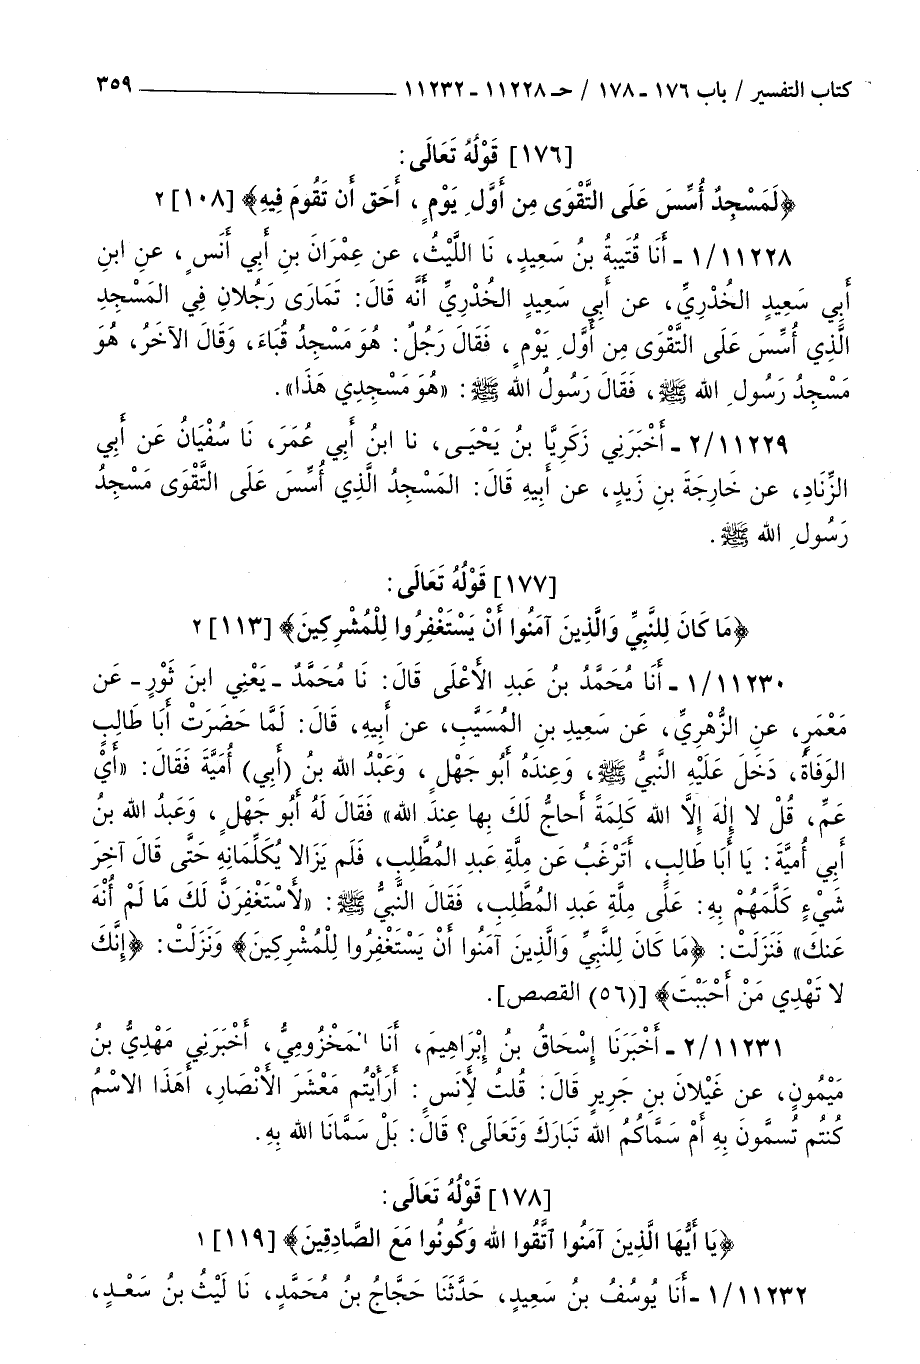 كتاب التفسير / باب ١٧٦ - ١٧٨ / حـ ١١٢٢٨ - ١١٢٣٢ ٣٥٩
[١٧٦] قَوْلُهُ تَعَالَى:
﴿لَمَسْجِدٌ أُسِّسَ عَلَى التَّقْوَى مِن أَوَّلِ يَوْمٍ، أَحَق أَن تَقُومَ فِيهِ﴾ [١٠٨] ٢
١/١١٢٢٨ - أَنَا قُتَيبةُ بنُ سَعِيدٍ، نَا اللَّيْثُ، عن عِمْرَانَ بنِ أَبي أَنَسٍ، عنِ ابنِ
أَبي سَعِيدٍ الخُدْرِيِّ، عن أَبي سَعِيدٍ الخُدْرِيِّ أَنَّه قَالَ: تَمَارَى رَجُلانِ فِي المَسْجِدِ
الَّذِي أُسِّسَ عَلَى التَّقْوَى مِن أَوَّلِ يَوْمٍ، فَقَالَ رَجُلٌ: هُوَ مَسْجِدُ قُبَاءَ، وَقَالَ الآخَرُ، هُوَ
مَسْجِدُ رَسُولِ الله ﷺ، فَقَالَ رَسُولُ الله ﷺ: «هُوَ مَسْجِدِي هَذَا».
٢/١١٢٢٩ - أَخْبَرَنِي زَكَرِيَّا بنُ يَحْيَـى، نا ابنُ أَبي عُمَرَ، نَا سُفْيَانُ عَن أَبي
الزِّنَادِ، عن خَارِجَةَ بنِ زَيدٍ، عن أَبيهِ قَالَ: المَسْجِدُ الَّذِي أُسِّسَ عَلَى التَّقْوَى مَسْجِدُ
رَسُولِ الله ﷺ.
[١٧٧] قَوْلُهُ تَعَالَى:
﴿مَا كَانَ لِلنَّبِيِّ وَالَّذِينَ آمَنُوا أَنْ يَسْتَغْفِرُوا لِلْمُشْرِكِينَ﴾ [١١٣] ٢
١/١١٢٣٠ - أَنَا مُحَمَّدُ بنُ عَبدِ الأَعْلَى قَالَ: نَا مُحَمَّدٌ - يَعْنِي ابنَ ثَوْرٍ - عَن
مَعْمَرٍ، عنِ الزُّهْرِيِّ، عَن سَعِيدِ بنِ المُسَيَّبِ، عن أَبيهِ، قَالَ: لَمَّا حَضَرَتْ أَبَا طَالِبٍ
الوَفَاةُ، دَخَلَ عَلَيْهِ النَّبيُّ ﷺ، وَعِندَهُ أَبُو جَهْلٍ، وَعَبْدُ الله بنُ (أَبي) أُمَيَّةَ فَقَالَ: «أَيْ
عَمِّ، قُلْ لا إِلٰهَ إِلَّا الله كَلِمَةً أُحاجُّ لَكَ بِها عِندَ الله» فَقَالَ لَهُ أَبُو جَهْلٍ، وَعَبدُ الله بنُ
أَبي أُمَيَّةَ: يَا أَبَا طَالِبٍ، أَتَرْغَبُ عَن مِلَّةِ عَبدِ المُطَّلِبِ، فَلَم يَزَالا يُكَلِّمَانِهِ حَتَّى قَالَ آخِرَ
شَيْءٍ كَلَّمَهُمْ بِهِ: عَلَى مِلَّةِ عَبدِ المُطَّلِبِ، فَقَالَ النَّبيُّ ﷺ: «لأَسْتَغْفِرَنَّ لَكَ مَا لَمْ أُنْهَ
عَنكَ» فَنَزَلَتْ: ﴿مَا كَانَ لِلنَّبِيِّ وَالَّذِينَ آمَنُوا أَنْ يَسْتَغْفِرُوا لِلْمُشْرِكِينَ﴾ وَنَزَلَتْ: ﴿إِنَّكَ
لا تَهْدِي مَنْ أَحْبَبْتَ﴾ [(٥٦) القصص].
٢/١١٢٣١ - أَخْبَرَنَا إِسْحَاقُ بنُ إِبْرَاهِيمَ، أَنَا المَخْزُومِيُّ، أَخْبَرَنِي مَهْدِيُّ بنُ
مَيْمُونٍ، عن غَيْلانَ بنِ جَرِيرٍ قَالَ: قُلتُ لأَنَسٍ: أَرَأَيْتُم مَعْشَرَ الأَنْصَارِ، أَهَذَا الاسْمُ
كُنتُم تُسمَّونَ بِهِ أَمْ سَمَّاكُمُ الله تَبَارَكَ وَتَعَالَى؟ قَالَ: بَلْ سَمَّانَا الله بِهِ.
[١٧٨] قَوْلُهُ تَعَالَى:
﴿يَا أَيُّهَا الَّذِينَ آمَنُوا اتَّقُوا الله وَكُونُوا مَعَ الصَّادِقِينَ﴾ [١١٩] ١
١/١١٢٣٢ - أَنَا يُوسُفُ بنُ سَعِيدٍ، حَدَّثَنَا حَجَّاجُ بنُ مُحَمَّدٍ، نَا لَيْثُ بنُ سَعْـدٍ،